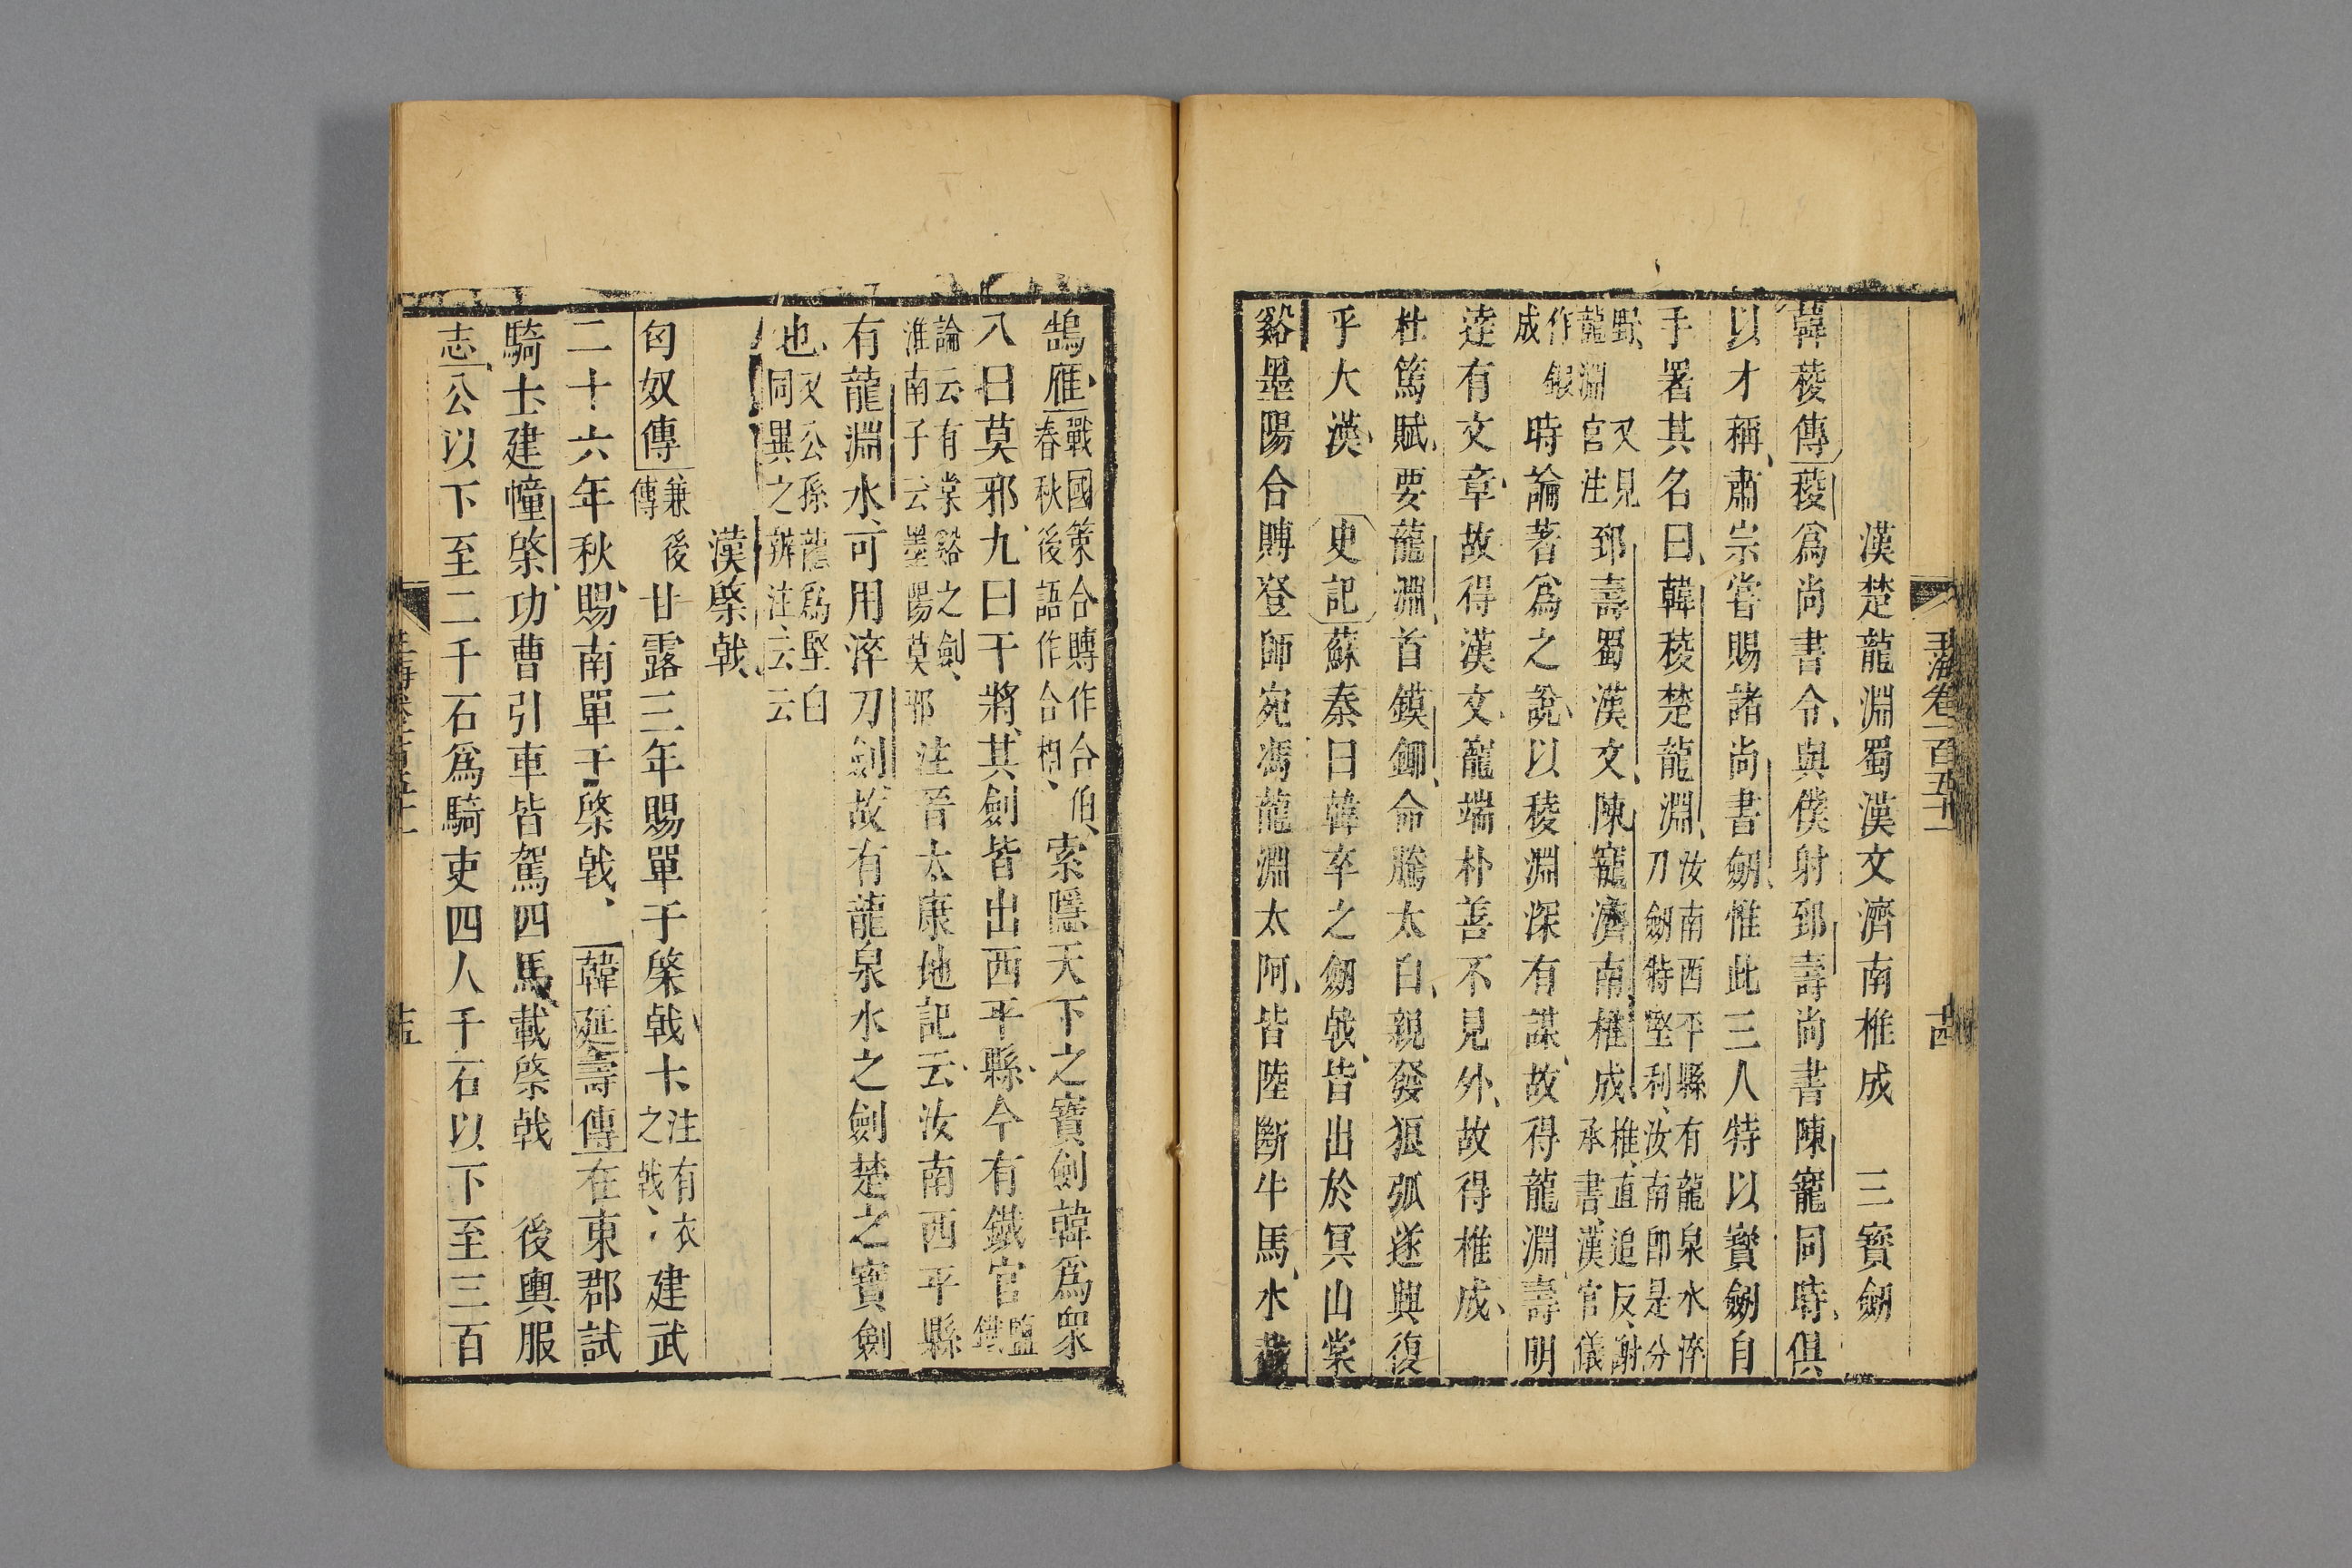 玉海卷一百五十一 十四
漢楚龍淵蜀漢文濟南椎成 三寳劒
韓稜傳稜爲尚書令與僕射郅壽尚書陳寵同時俱
以才稱肅宗嘗賜諸尚書劒惟此三人特以寳劒自
手署其名曰韓稜楚龍淵汝南西平縣有龍泉水淬刀劒特堅利汝南卽是分
野龍淵又見官注郅壽蜀漢文陳寵濟南椎成椎直追反謝承書漢官儀
作銀成時論著爲之說以稜淵深有謀故得龍淵壽明
逹有文章故得漢文寵端朴善不見外故得椎成
杜篤賦要龍淵首鏌鋣命騰太白親發狼弧遂興復
乎大漢 史記蘇秦曰韓卒之劒戟皆出於冥山棠
谿墨陽合賻登師宛馮龍淵太阿皆陸斷牛馬水截
鵠雁戰國策合賻作合伯春秋後語作合相索隱天下之寳劍韓爲衆
八曰莫邪九曰干將其劍皆出西平縣今有鐵官鹽鐵
論云有棠谿之劍淮南子云墨陽莫邪注晉太康地記云汝南西平縣
有龍淵水可用淬刀劍故有龍泉水之劍楚之寳劍
也又公孫龍爲堅白同異之辨注云云
漢棨戟
匈奴傳兼後傳甘露三年賜單于棨戟十注有衣之戟建武
二十六年秋賜南單于棨戟 韓延壽傳在東郡試
騎士建幢棨功曹引車皆駕四馬載棨戟 後輿服
志公以下至二千石爲騎吏四人千石以下至三百
十五